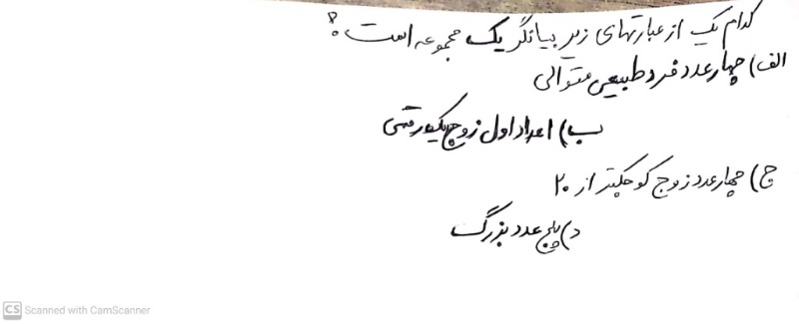 کدام یک از عبارتهای زیر بیانگر یک مجموعه است؟
الف) چهار عدد فرد طبیعی متوالی
ب) اعداد اول زوج یک رقمی
ج) چهار عدد زوج کوچکتر از ۲۰
د) پنج عدد بزرگ
CS Scanned with CamScanner